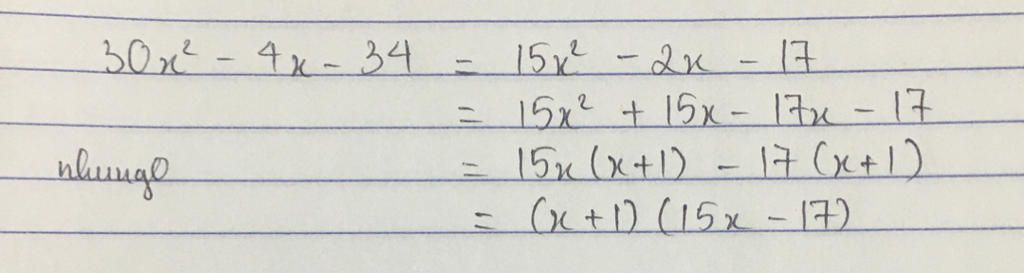 30x² - 4x - 34 = 15x² - 2x - 17
= 15x² + 15x - 17x - 17
nhung0 = 15x (x+1) - 17 (x+1)
= (x+1) (15x - 17)